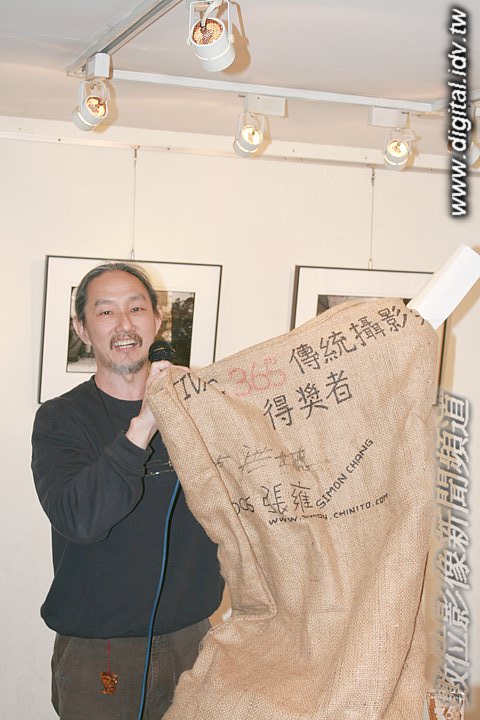 www.digital.idv.tw
365 傳統攝影
得獎者
張雍 SIMON CHANG
WWW.SIMON.CHINITO.COM
數位影像新聞頻道